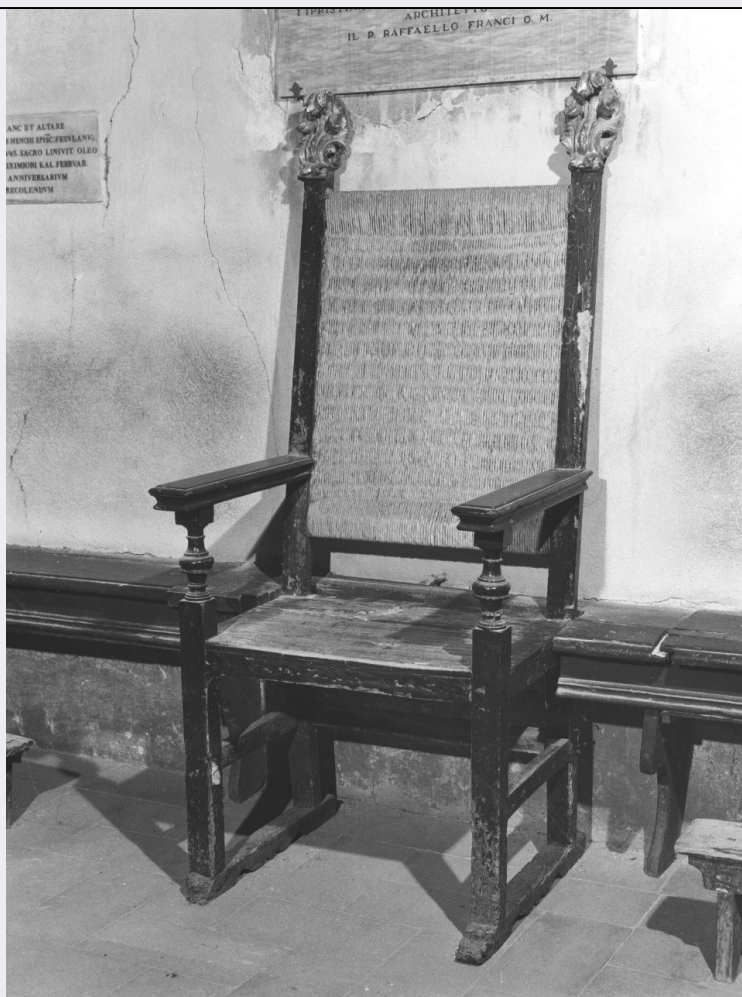 ARCHITETTO
IL P. RAFFAELLO FRANCI O M.
ANC ET ALTARE
MENCHI EPISC FESVLANVS
SACRO LINIVIT OLEO
KAL. FEBRVAR
ANNIVERSARIVM
RECOLENDVM